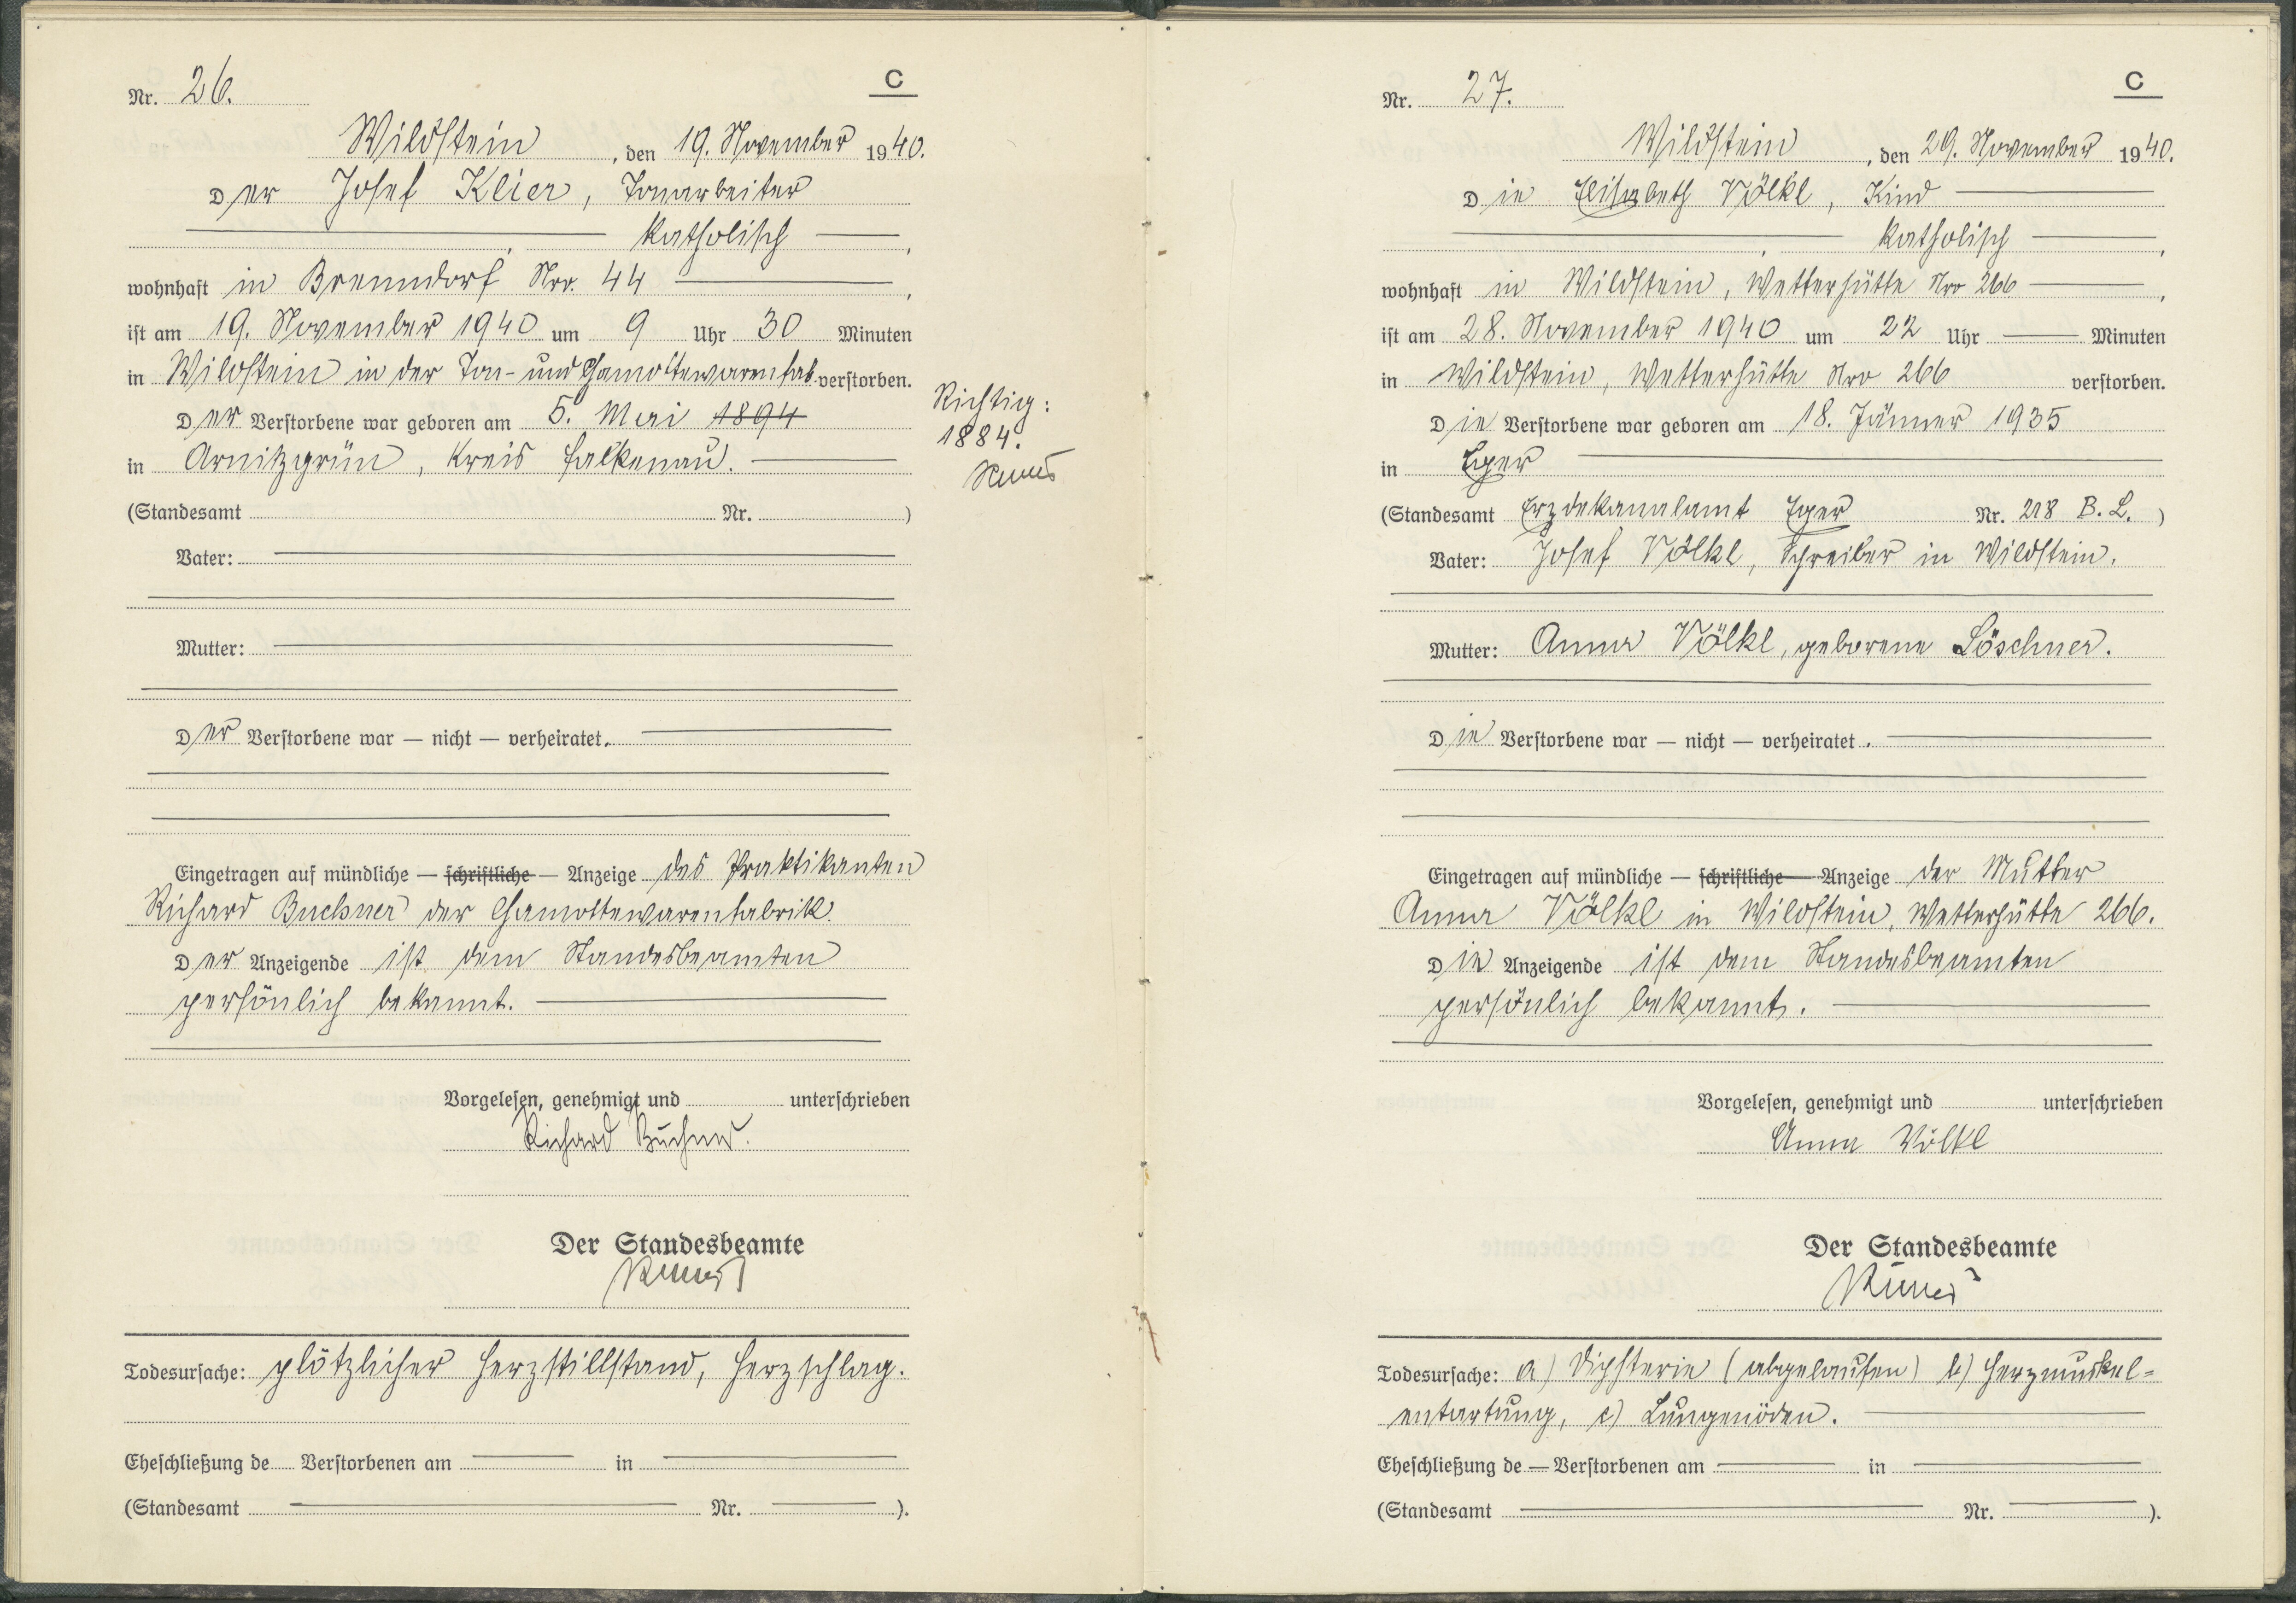 Nr. 26. C
Wildstein, den 19. November 1940.
Der Josef Klier, Tonarbeiter
katholisch,
wohnhaft in Brenndorf Nro. 44,
ist am 19. November 1940 um 9 Uhr 30 Minuten
in Wildstein in der Ton- und Chamottewarenfab. verstorben.
Der Verstorbene war geboren am 5. Mai 1894
in Arnitzgrün, Kreis Falkenau.
Richtig:
1884.
(Standesamt Nr. )
Vater:
Mutter:
Der Verstorbene war — nicht — verheiratet.
Eingetragen auf mündliche — schriftliche — Anzeige des Praktikanten
Richard Buchner der Chamottewarenfabrik.
Der Anzeigende ist dem Standesbeamten
persönlich bekannt.
Vorgelesen, genehmigt und unterschrieben
Richard Buchner.
Der Standesbeamte
Todesursache: plötzlicher Herzstillstand, Herzschlag.
Eheschließung de Verstorbenen am in
(Standesamt Nr. ).
Nr. 27. C
Wildstein, den 29. November 1940.
Die Elisabeth Völkl, Kind
katholisch,
wohnhaft in Wildstein, Wetterhütte Nro 266,
ist am 28. November 1940 um 22 Uhr — Minuten
in Wildstein, Wetterhütte Nro 266 verstorben.
Die Verstorbene war geboren am 18. Jänner 1935
in Eger
(Standesamt Erzdekanalamt Eger Nr. 218 B. L. )
Vater: Josef Völkl, Schreiber in Wildstein.
Mutter: Anna Völkl, geborene Löschner.
Die Verstorbene war — nicht — verheiratet.
Eingetragen auf mündliche — schriftliche — Anzeige der Mutter
Anna Völkl in Wildstein, Wetterhütte 266.
Die Anzeigende ist dem Standesbeamten
persönlich bekannt.
Vorgelesen, genehmigt und unterschrieben
Anna Völkl
Der Standesbeamte
Todesursache: a) Diphterie (abgelaufen) b) Herzmuskel-
entartung, c) Lungenödem.
Eheschließung de — Verstorbenen am in
(Standesamt Nr. ).